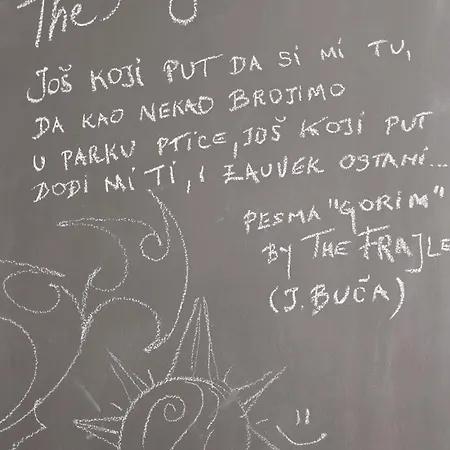 The
JOŠ KOJI PUT DA SI MI TU,
DA KAO NEKAD BROJIMO
U PARKU PTICE, JOŠ KOJI PUT
DOĐI MI TI, I ZAUVEK OSTANI...
PESMA "GORIM"
By THE FRAJLE
(J. BUČA)